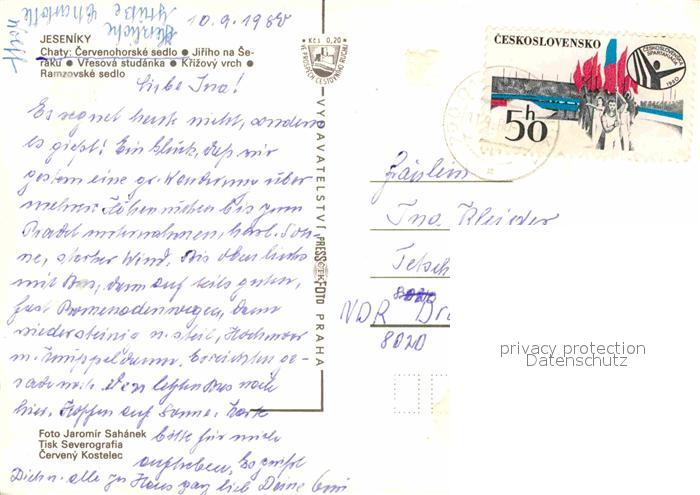 10.9.1980
Herzliche
Grüße
Charlotte
Wolff
JESENÍKY
Chaty: Červenohorské sedlo ● Jiřího na Še-
ráku ● Vřesová studánka ● Křížový vrch ●
Ramzovské sedlo
Kčs 0,20
VE PROSPĚCH CESTOVNÍHO RUCHU
Liebe Ina!
Es regnet heute nicht, sondern
es gießt! Ein Glück, daß wir
gestern eine gr. Wanderung über
mehrere Höhen bis zum
Praděd unternahmen, herrl. Son-
ne, starker Wind. Bis oben
mit Bus, dann auf teils guten,
fast Promenadenwegen, dann
wieder steinig u. steil, Hochmoor
m. Knüppeldamm. Erreichten ge-
rade noch den letzten Bus nach
hier. Hoffen auf Sonne. Karte
bitte für mich
aufheben. Es grüßt
Dich u. alle zu Haus ganz lieb Deine Omi
VYDAVATELSTVÍ PRESSFOTO PRAHA
Foto Jaromír Sahánek
Tisk Severografia
Červený Kostelec
ČESKOSLOVENSKO
ČESKOSLOVENSKÁ SPARTAKIÁDA 1980
50 h
Fräulein
Ina Kleider
Tetsch
8020
NDR Dr
8020
privacy protection
Datenschutz